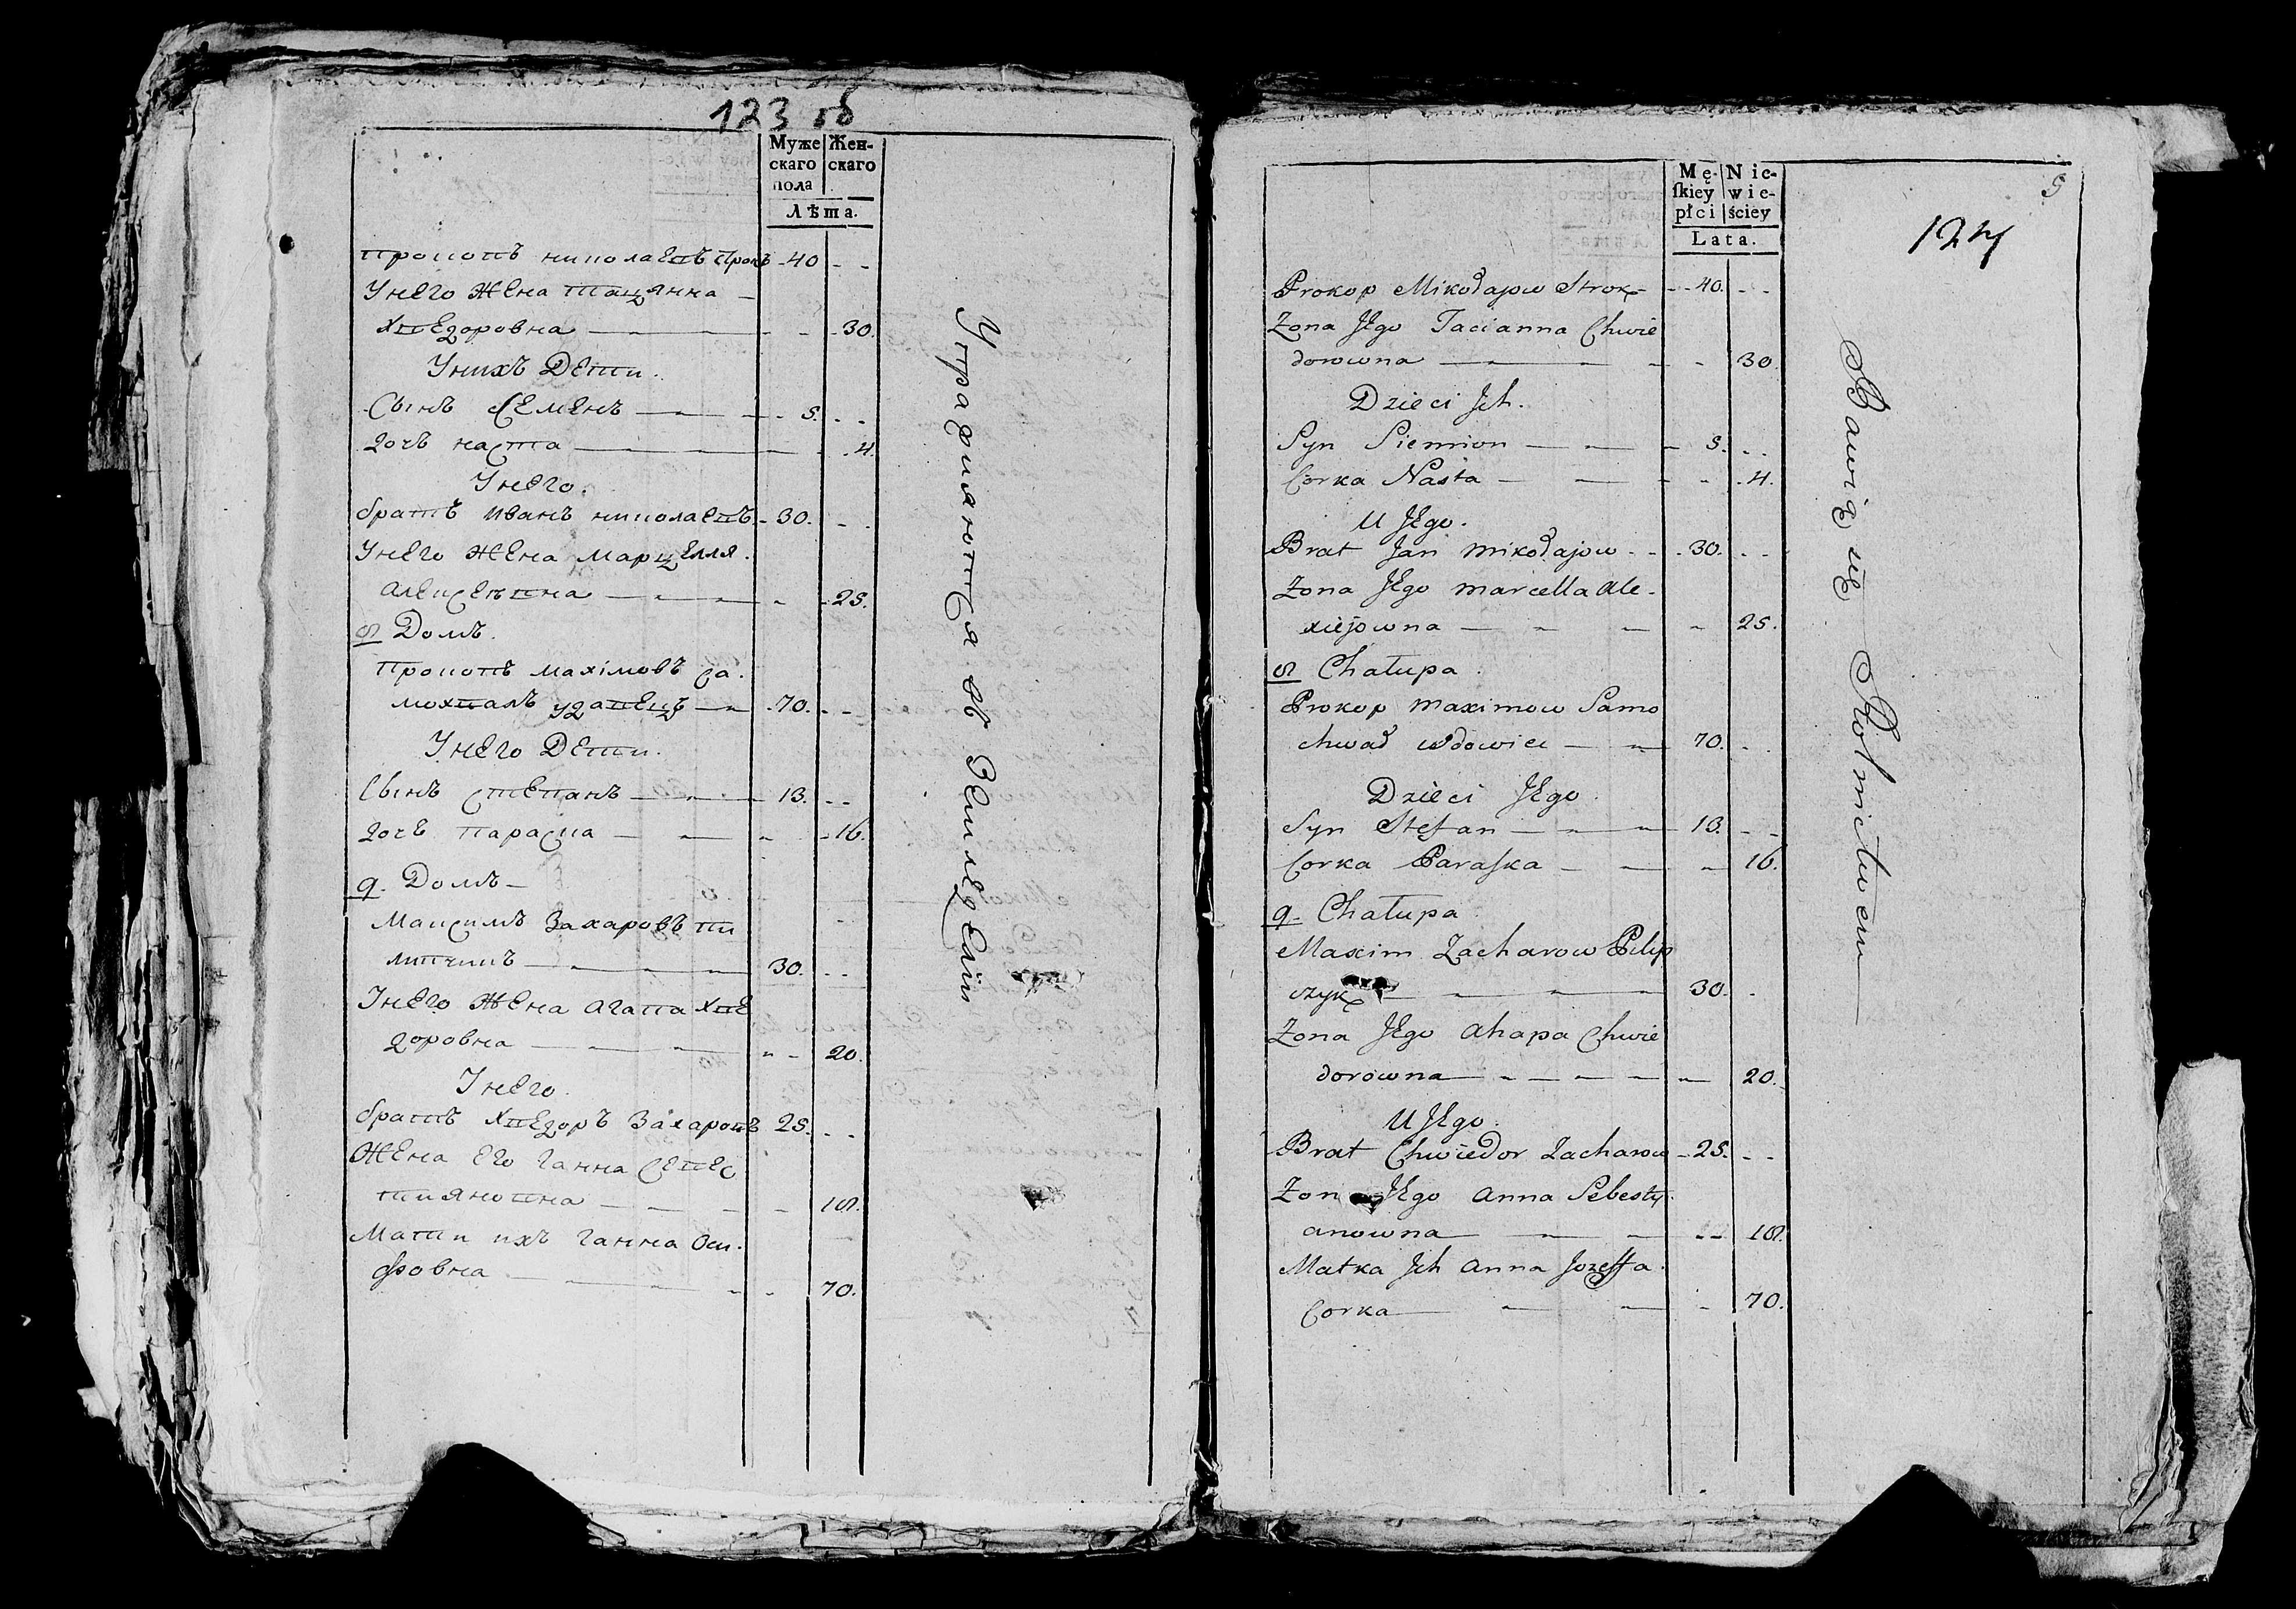 123 об
Муже
скаго
пола
Жен-
скаго
Лѣта.
Прокопъ николаевъ Строкъ - 40 - -
Унего Жена тацянна -
хведоровна - - 30.
Унихъ Дети.
Сынъ Семенъ - 5. - -
дочъ наста - 4.
Унего.
братъ иванъ николаевъ - 30. - -
Унего Жена Марцелля.
алексеевна - 25.
8 Домъ.
Прокопъ махімовъ Са.
мохвалъ удавецъ - 70. - -
Унего Дети.
Сынъ Степанъ - 13. - -
дочъ параска - 16.
9. Домъ -
Максимъ Захаровъ пи
липчикъ - 30. - -
Унего Жена агапа хве
доровна - 20.
Унего.
братъ хведоръ Захаровъ 25. - -
Жена его ганна Себес
тияновна - 18.
Мати ихъ ганна Оси.
фовна - 70.
Упражняются въ Земледелии
Mę-
skiey
płci
Nie-
wie-
ściey
Lata.
5
124
Prokop Mikołajow Strok - 40. - -
Zona Jego Tacianna Chwie
dorowna - 30
Dzieci Jch.
Syn Siemion - 5. - -
Corka Nasta - 4.
U Jego.
Brat Jan Mikołajow - 30. - -
Zona Jego Marcella Ale -
xiejowna - 25.
8 Chałupa.
Prokop Maximow Samo
chwał wdowiec - 70. - -
Dzieci Jego.
Syn Stefan - 13. - -
Corka Paraska - 16.
9. Chałupa
Maxim Zacharow Pilip
czyk - 30. -
Zona Jego Ahapa Chwie
dorowna - 20.
U Jego.
Brat Chwiedor Zacharow - 25. - -
Zona Jego Anna Sebesty
anowna - 18.
Matka Jch Anna Jozeffa.
Corka - 70.
Bawią się Rolnictwem